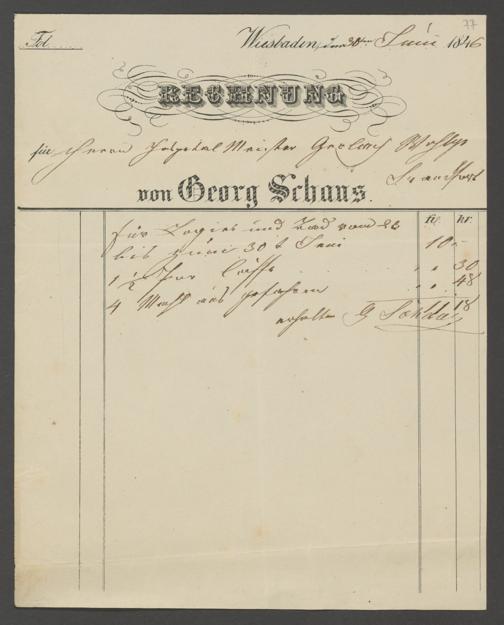 77
Fol.
Wiesbaden, den 30ten Juni 1846
RECHNUNG
für Herrn Hospital Meister Gerlach
Frankfurt
von Georg Schaus.
fl. kr.
für Logies und Bad vom
bis zum 30 t Juni 10 -
1 ½ " " 30
" " 48
4 Mahl aus gefahren
erhalten G Schaus 18